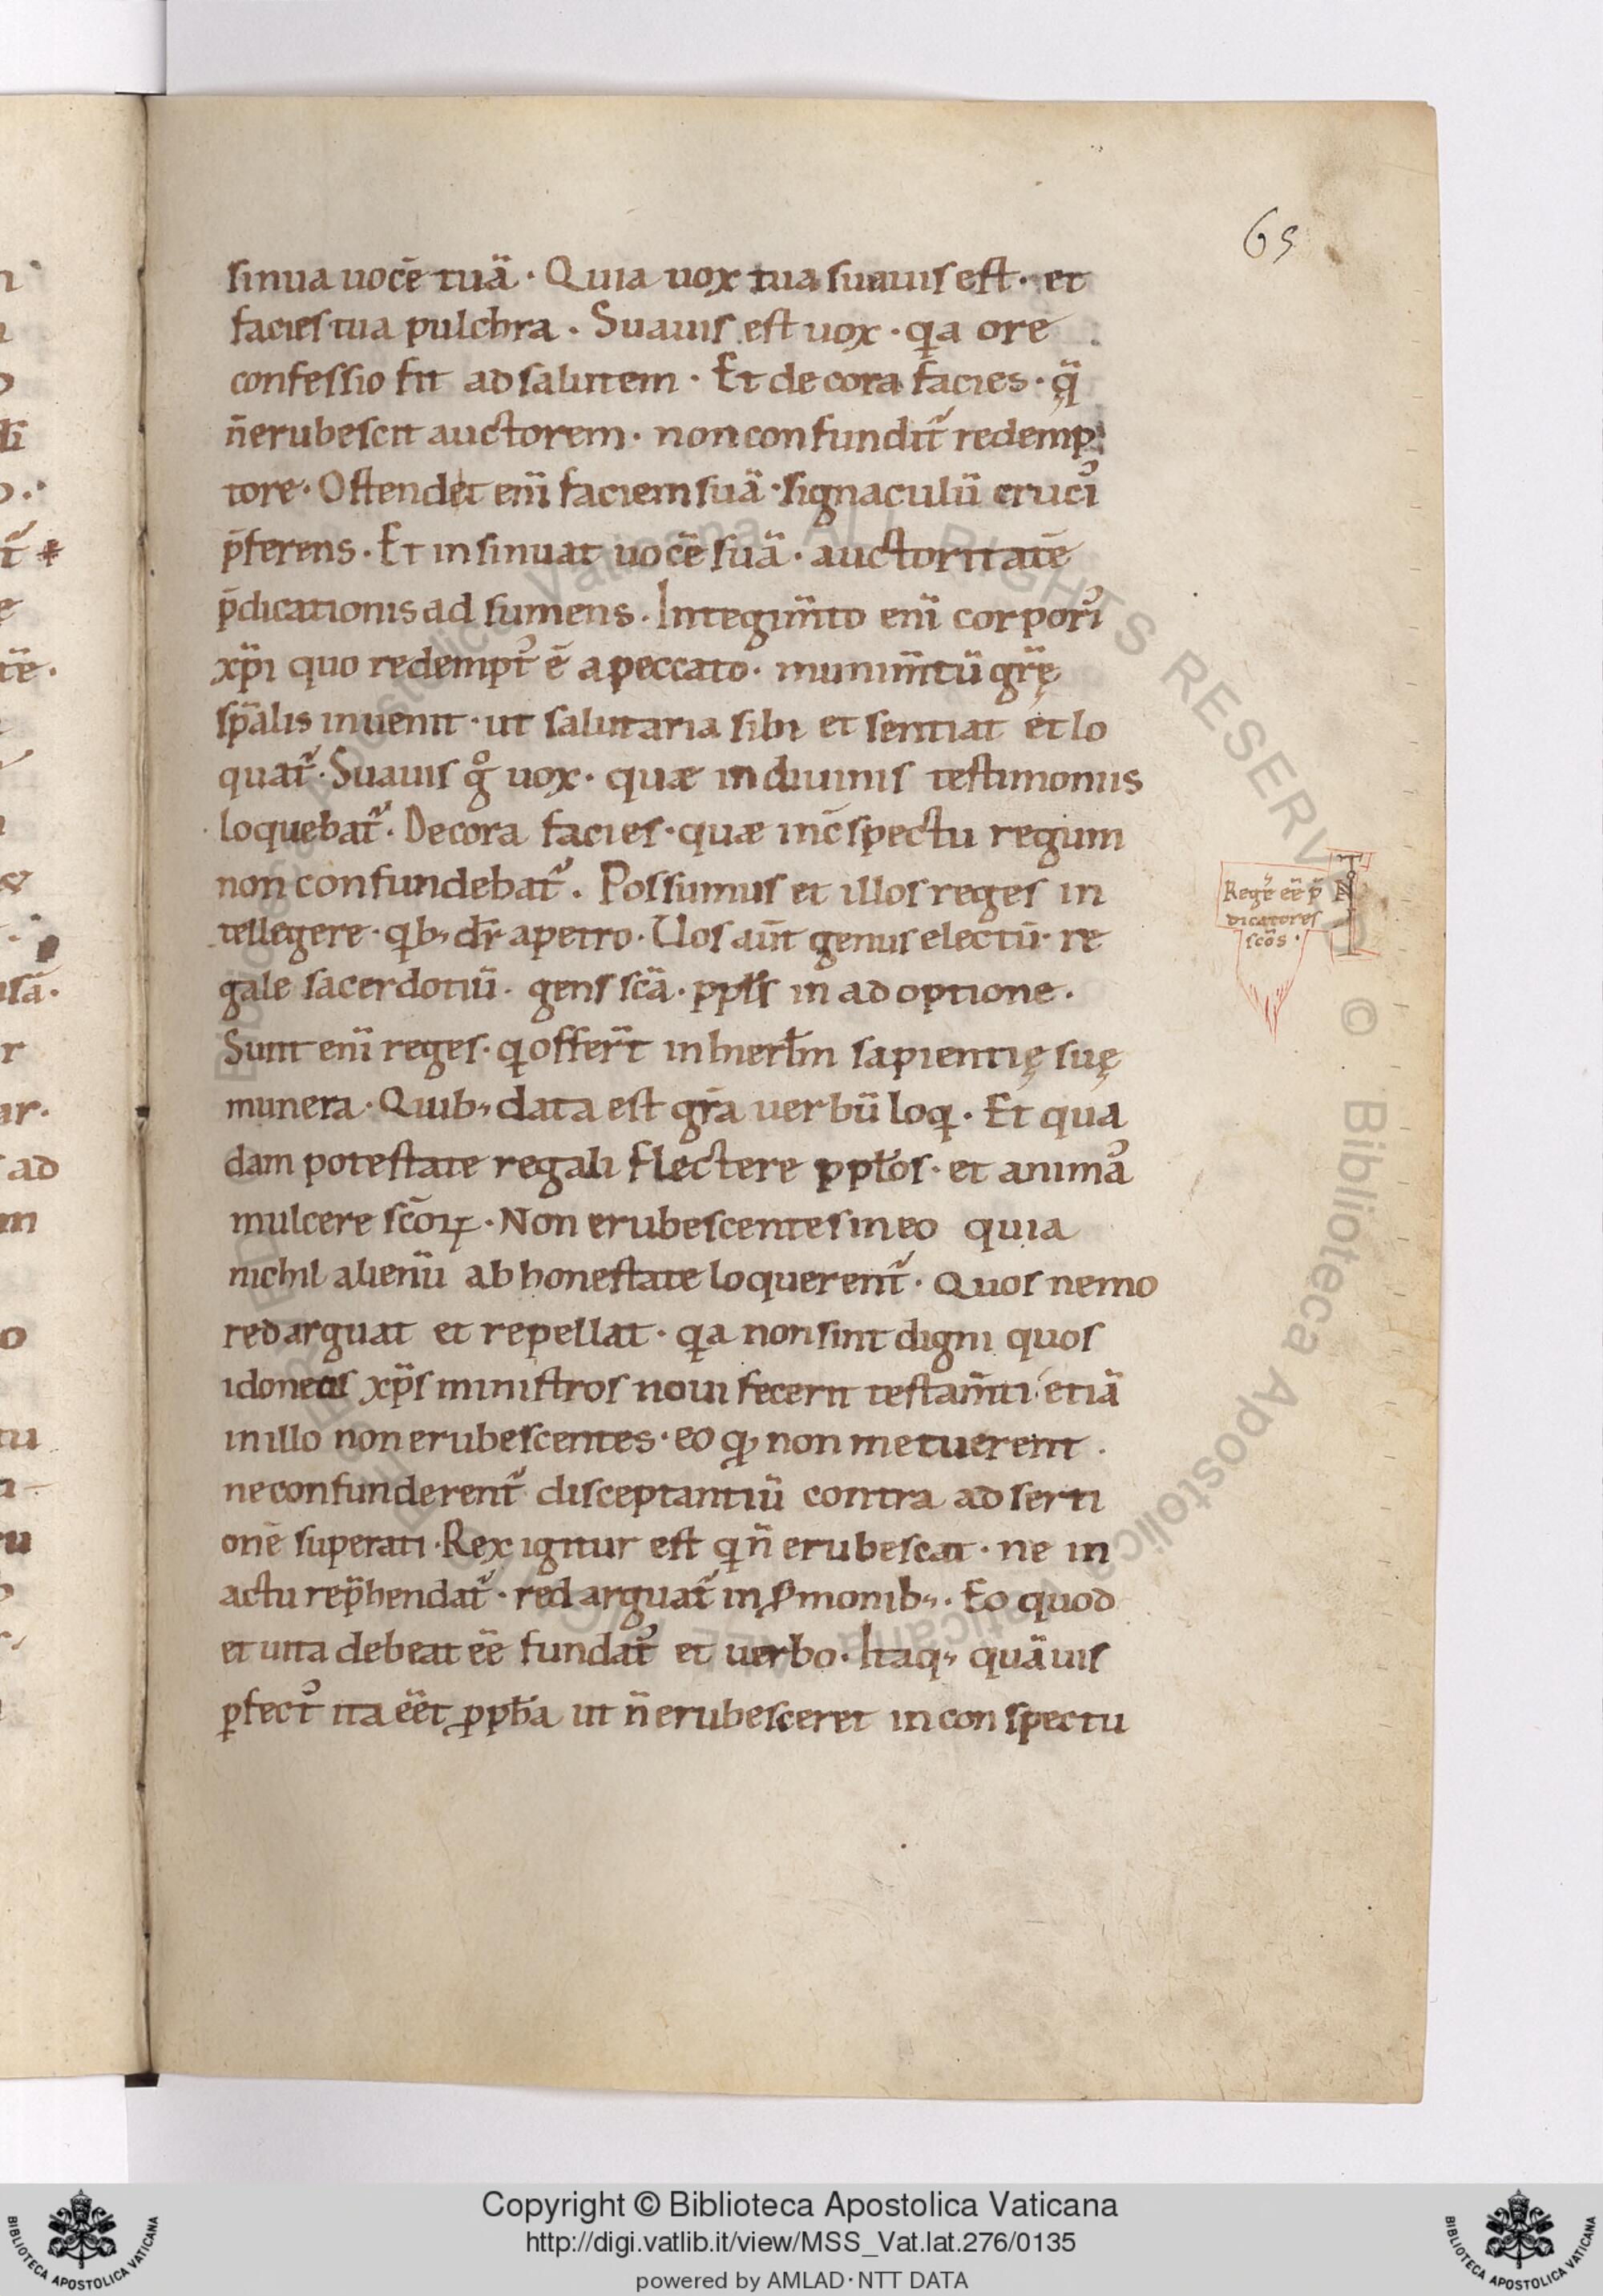 65
sinua uocē tuā · Quia uox tua suauis est · et
facies tua pulchra · Suauis est uox · qa ore
confessio fit ad salutem · Et decora facies · q̄
n̄ erubescit auctorem · non confundit᷑ redemp
tore · Ostendet eni᷑ faciem suā · signaculū cruciˀ
p̄ferens · Et insinuat uocē suā · auctoritatē
p̄dicationis ad sumens · Integim̄to eni᷑ corporiˀ
xp̄i quo redemptˀ ē a peccato · munim̄tū gr̄ę
sp̄alis inuenit · ut salutaria sibi et sentiat et lo
quat᷑ · Suauis g° uox · quæ in diuinis testimoniis
loquebat᷑ · Decora facies · quæ inc̄spectu regum
non confundebat᷑ · Possumus et illos reges in
tellegere · qb; dr̄ a petro · Uos aut̄ genus electū · re
gale sacerdotiū · gens sc̄a · ppl̄s in adoptione ·
Sunt eni᷑ reges · q offerr̄t in hierl̄m sapientię suę
munera · Quib; data est gr̄a uerbū loq · Et qua
dam potestate regali flectere ppl̄os · et animaˀ
mulcere sc̄oꝝ · Non erubescentes in eo quia
nichil alienū ab honestate loquerent᷑ · Quos nemo
redarguat et repellat · qa non sint digni quos
idoneos xp̄s ministros noui fecerit testam̄ti · etiā
in illo non erubescentes · eo q, non metuerent ·
ne confunderent᷑ disceptantiū contra ad serti
onē superati · Rex igitur est q n̄ erubescat · ne in
actu rep̄hendat᷑ · redarguat᷑ in s̄monib; · Eo quod
et uita debeat ēē fundatˀ et uerbo · Itaq; quāuis
ꝑfectˀ ita ēēt ꝓpħa ut n̄ erubesceret in conspectu
Regeˀ ēē p̄
dicatores
sc̄os ·
Copyright © Biblioteca Apostolica Vaticana
http://digi.vatlib.it/view/MSS_Vat.lat.276/0135
powered by AMLAD·NTT DATA
BIBLIOTECA APOSTOLICA VATICANA
BIBLIOTECA APOSTOLICA VATICANA